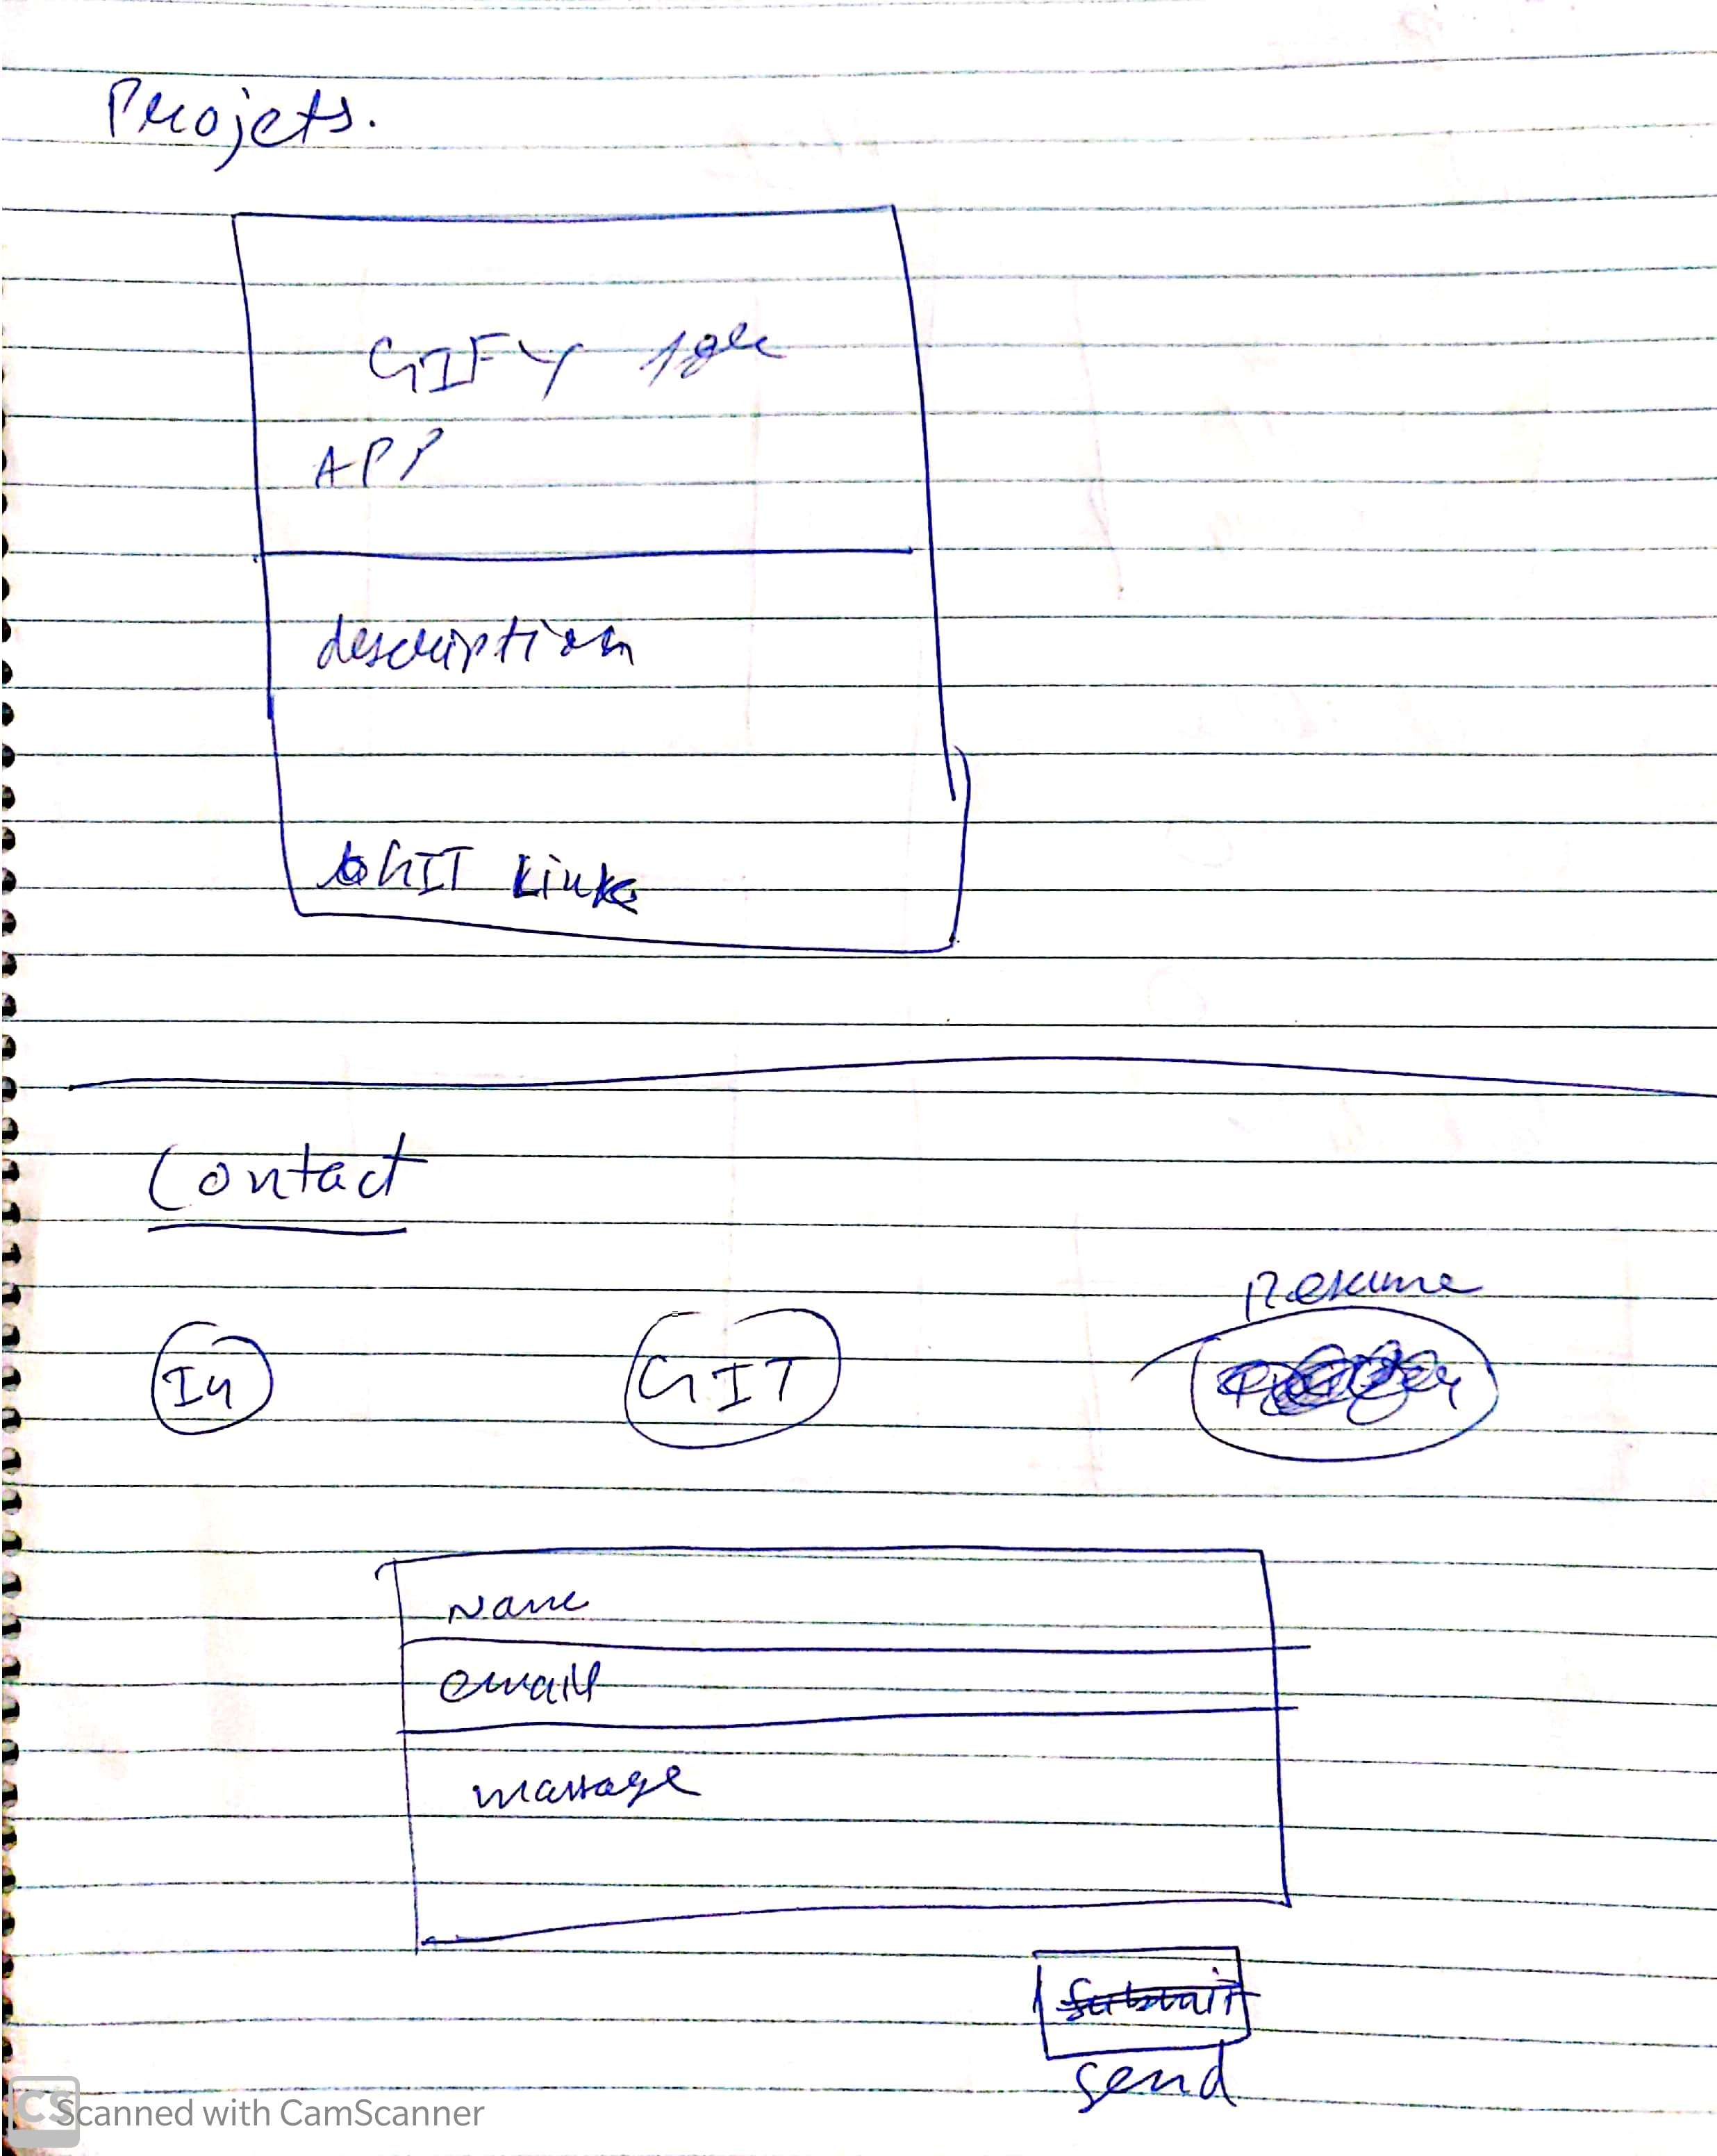 Projets.
GIFY
APP
description
GIT Link
Contact
Resume
In
GIT
Name
email
massage
Submit
send
CS Scanned with CamScanner